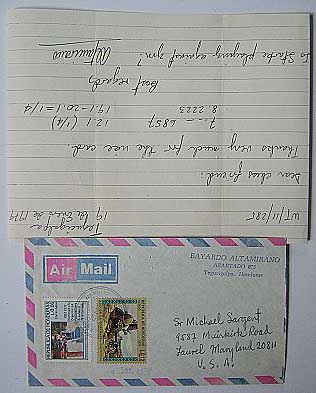 WT/11/285
Tegucigalpa
19 de Enero de 1979
Dear chess friend:
Thanks very much for the nice card.
7. -- 6857 12.1 (1/4)
8. 2223 19.1-20.1 = 1/4
Best regards
To Starke playing against zpm?
Air Mail
BAYARDO ALTAMIRANO
APARTADO
Tegucigalpa, Honduras
Sr Michael Sargent
9887 Muirkirk Road
Laurel Maryland 20811
U. S. A.